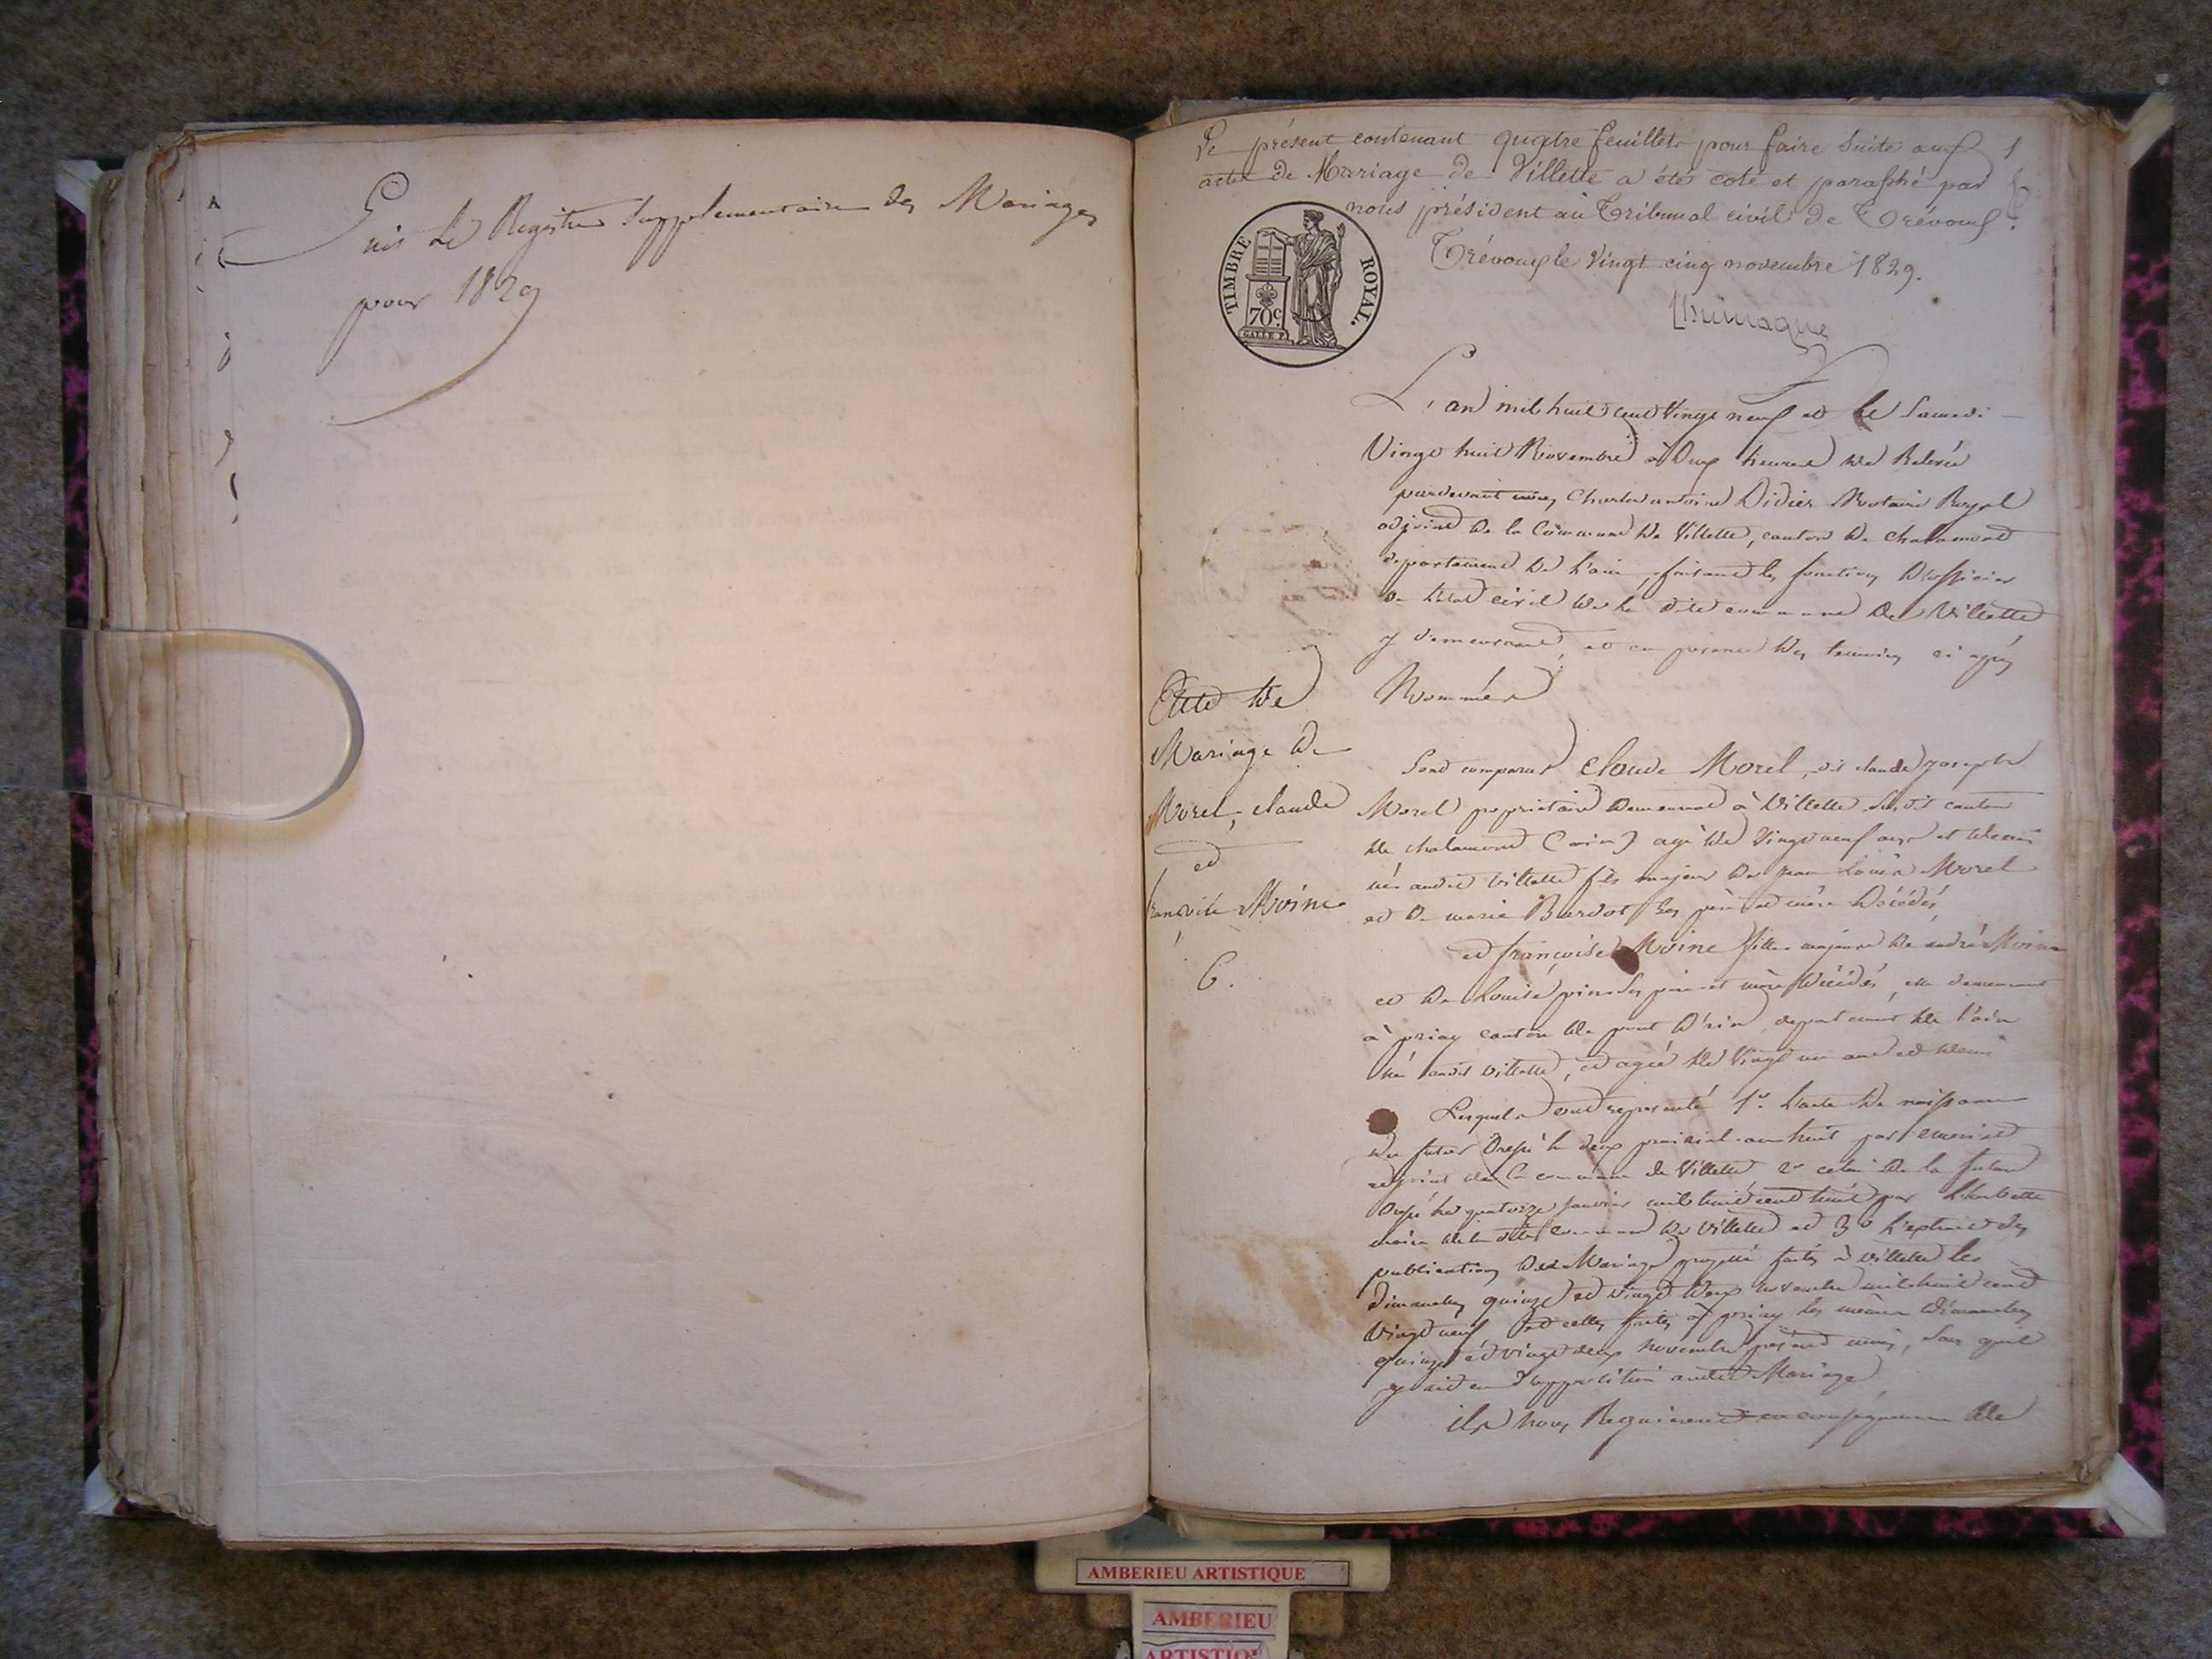 Suit le Registre Supplementaire des Mariages
pour 1829
Le présent contenant quatre feuillets pour faire suite aux
1
actes de Mariage de Villette a étés coté et paraphé par
nous président au Tribunal civil de Trévoux.
Trévoux le vingt cinq novembre 1829.
TIMBRE ROYAL.
70c.
GALLE F.
L'an mil huit cent vingt neuf et le Samedi
vingt huit Novembre à deux heures de Relevée
pardevant nous Charles antoine Didier Notaire Royal
adjoint de la Commune de Villette, canton de chalamont
departement de l'ain, faisant les fonctions d'officier
de l'état civil de la dite commune de Villette
y demeurant, et en presence des temoins ci après
Nommés
Acte de
Mariage de
Morel, claude
et
françoise Moine
6.
Sont comparus Claude Morel, dit claude joseph
Morel propriétaire demeurant à Villette susdit canton
de chalamont (ain) agé de vingt neuf ans et demi
né audit Villette fils majeur de jean Louis Morel
et de marie Bardot ses père et mère décédés
et françoise Moine fille majeure de andré Moine
et de Louise ses père et mère décédés, elle demeurant
à priay canton de pont d'ain departement de l'ain
née audit Villette, et agée de vingt un ans et demi
Lesquels ont representé 1° l'acte de naissance
du futur dressé le deux prairial an huit par
adjoint de la commune de Villette 2° celui de la future
dressé le quatorze janvier mil huit cent huit par
maire de la dite commune de Villette et 3° l'extrait des
publications de Mariage projetté faites à Villette les
dimanches quinze et vingt deux novembre mil huit cent
vingt neuf et celles faites à priay les mêmes dimanches
quinze et vingt deux novembre présent mois, sans qu'il
y ait eu d'opposition audit Mariage
ils nous Requierent en conséquence de
AMBERIEU ARTISTIQUE
AMBERIEU
ARTISTIQUE